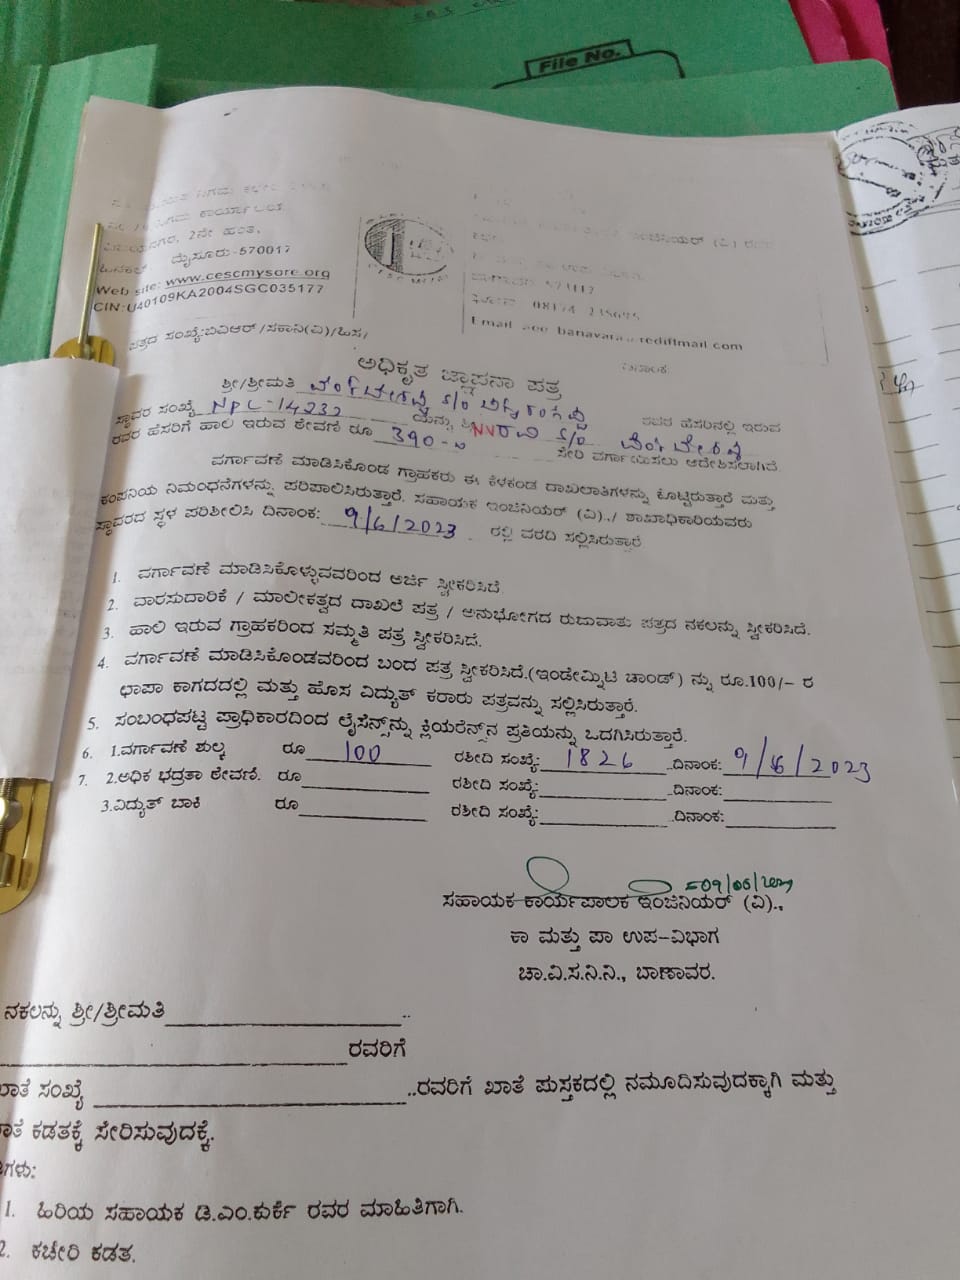 File No.
2ನೇ ಹಂತ,
ಮೈಸೂರು-570017
Web site: www.cescmysore.org
CIN:U40109KA2004SGC035177
ಇಂಜಿನಿಯರ್ (ವಿ)
08174
Email aee banavara rediffmail com
ಪತ್ರದ ಸಂಖ್ಯೆ:
ದಿನಾಂಕ:
ಅಧಿಕೃತ ಜ್ಞಾಪನಾ ಪತ್ರ
ಶ್ರೀ/ಶ್ರೀಮತಿ S/o ರವರ ಹೆಸರಿನಲ್ಲಿ ಇರುವ
ಸ್ಥಾವರ ಸಂಖ್ಯೆ NPL-14232 ಯನ್ನು ಶ್ರೀ NV ರವಿ S/o
ರವರ ಹೆಸರಿಗೆ ಹಾಲಿ ಇರುವ ಠೇವಣಿ ರೂ 390-00 ಸೇರಿ ವರ್ಗಾಯಿಸಲು ಆದೇಶಿಸಲಾಗಿದೆ.
ವರ್ಗಾವಣೆ ಮಾಡಿಸಿಕೊಂಡ ಗ್ರಾಹಕರು ಈ ಕೆಳಕಂಡ ದಾಖಲಾತಿಗಳನ್ನು ಕೊಟ್ಟಿರುತ್ತಾರೆ ಮತ್ತು
ಕಂಪನಿಯ ನಿಬಂಧನೆಗಳನ್ನು ಪರಿಪಾಲಿಸಿರುತ್ತಾರೆ. ಸಹಾಯಕ ಇಂಜಿನಿಯರ್ (ವಿ)., ಶಾಖಾಧಿಕಾರಿಯವರು
ಸ್ಥಾವರದ ಸ್ಥಳ ಪರಿಶೀಲಿಸಿ ದಿನಾಂಕ: 9/6/2023 ರಲ್ಲಿ ವರದಿ ಸಲ್ಲಿಸಿರುತ್ತಾರೆ
1. ವರ್ಗಾವಣೆ ಮಾಡಿಸಿಕೊಳ್ಳುವವರಿಂದ ಅರ್ಜಿ ಸ್ವೀಕರಿಸಿದೆ
2. ವಾರಸುದಾರಿಕೆ / ಮಾಲೀಕತ್ವದ ದಾಖಲೆ ಪತ್ರ / ಅನುಭೋಗದ ರುಜುವಾತು ಪತ್ರದ ನಕಲನ್ನು ಸ್ವೀಕರಿಸಿದೆ.
3. ಹಾಲಿ ಇರುವ ಗ್ರಾಹಕರಿಂದ ಸಮ್ಮತಿ ಪತ್ರ ಸ್ವೀಕರಿಸಿದೆ.
4. ವರ್ಗಾವಣೆ ಮಾಡಿಸಿಕೊಂಡವರಿಂದ ಬಂದ ಪತ್ರ ಸ್ವೀಕರಿಸಿದೆ.(ಇಂಡೇಮ್ನಿಟಿ ಬಾಂಡ್) ನ್ನು ರೂ.100/- ರ
ಛಾಪಾ ಕಾಗದದಲ್ಲಿ ಮತ್ತು ಹೊಸ ವಿದ್ಯುತ್ ಕರಾರು ಪತ್ರವನ್ನು ಸಲ್ಲಿಸಿರುತ್ತಾರೆ.
5. ಸಂಬಂಧಪಟ್ಟ ಪ್ರಾಧಿಕಾರದಿಂದ ಲೈಸೆನ್ಸ್‌ನ್ನು ಕ್ಲಿಯರೆನ್ಸ್‌ನ ಪ್ರತಿಯನ್ನು ಒದಗಿಸಿರುತ್ತಾರೆ.
6. 1.ವರ್ಗಾವಣೆ ಶುಲ್ಕ ರೂ 100 ರಶೀದಿ ಸಂಖ್ಯೆ: 1826 ದಿನಾಂಕ: 9/6/2023
7. 2.ಅಧಿಕ ಭದ್ರತಾ ಠೇವಣಿ. ರೂ ರಶೀದಿ ಸಂಖ್ಯೆ: ದಿನಾಂಕ:
3.ವಿದ್ಯುತ್ ಬಾಕಿ ರೂ ರಶೀದಿ ಸಂಖ್ಯೆ: ದಿನಾಂಕ:
ಸಹಾಯಕ ಕಾರ್ಯಪಾಲಕ ಇಂಜಿನಿಯರ್ (ವಿ).,
ಕಾ ಮತ್ತು ಪಾ ಉಪ-ವಿಭಾಗ
ಚಾ.ವಿ.ಸ.ನಿ.ನಿ., ಬಾಣಾವರ.
ನಕಲನ್ನು ಶ್ರೀ/ಶ್ರೀಮತಿ
ರವರಿಗೆ
ಖಾತೆ ಸಂಖ್ಯೆ ..ರವರಿಗೆ ಖಾತೆ ಪುಸ್ತಕದಲ್ಲಿ ನಮೂದಿಸುವುದಕ್ಕಾಗಿ ಮತ್ತು
ಕಡತಕ್ಕೆ ಸೇರಿಸುವುದಕ್ಕೆ.
1. ಹಿರಿಯ ಸಹಾಯಕ ಡಿ.ಎಂ.ಕುರ್ಕೆ ರವರ ಮಾಹಿತಿಗಾಗಿ.
2. ಕಚೇರಿ ಕಡತ.